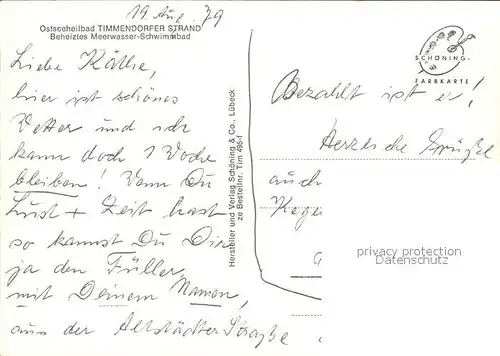 19 Aug. 79
Ostseeheilbad TIMMENDORFER STRAND
Beheiztes Meerwasser-Schwimmbad
Liebe Käthe,
hier ist schönes
Wetter und ich
kann doch 1 Woche
bleiben! Wenn Du
Lust + Zeit hast
so kannst Du Dir
ja den Füller,
mit Deinem Namen,
aus der Altstädter Straße
Hersteller und Verlag Schöning & Co., Lübeck
ze Bestellnr. Tim 495-f
SCHÖNING-
FARBKARTE
Bezahlt ist er!
Herzliche Grüße
auch
Kege
privacy protection
Datenschutz